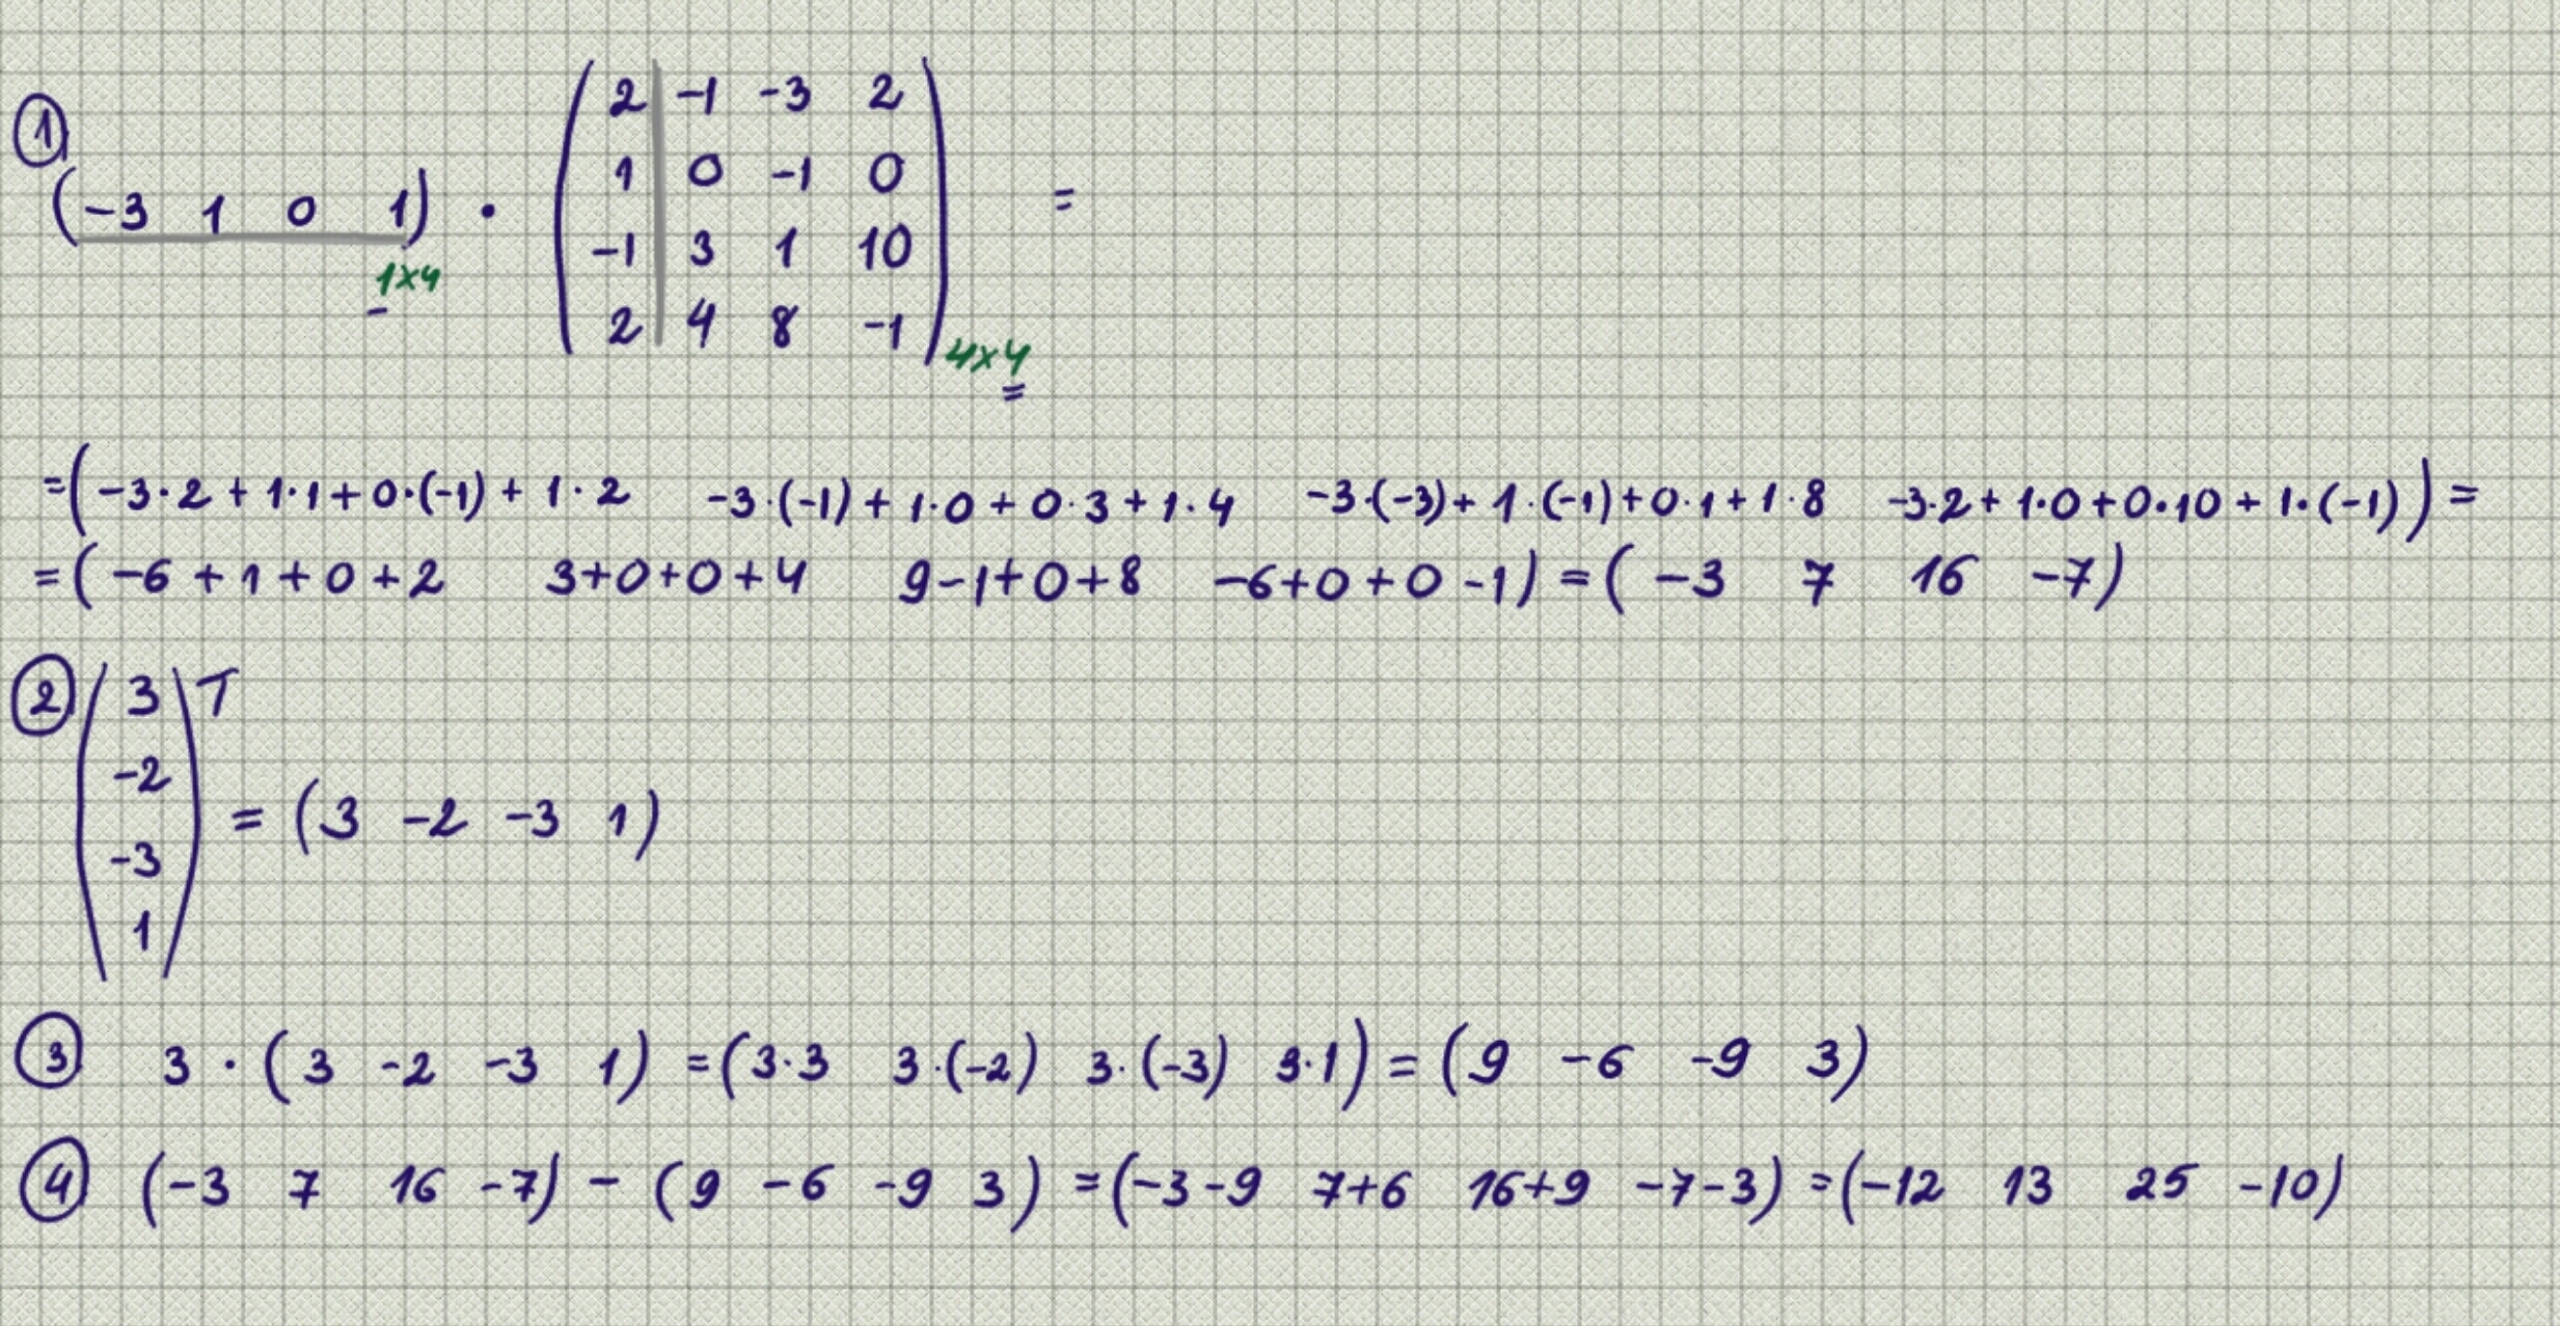 ①
(-3 1 0 1) 1×4 · (2 -1 -3 2
1 0 -1 0
-1 3 1 10
2 4 8 -1) 4×4 =
=(-3·2 + 1·1 + 0·(-1) + 1·2 -3·(-1) + 1·0 + 0·3 + 1·4 -3·(-3) + 1·(-1) + 0·1 + 1·8 -3·2 + 1·0 + 0·10 + 1·(-1)) =
=(-6 + 1 + 0 + 2 3+0+0+4 9-1+0+8 -6+0+0-1) = (-3 7 16 -7)
② (3
-2
-3
1)T = (3 -2 -3 1)
③ 3 · (3 -2 -3 1) = (3·3 3·(-2) 3·(-3) 3·1) = (9 -6 -9 3)
④ (-3 7 16 -7) - (9 -6 -9 3) = (-3-9 7+6 16+9 -7-3) = (-12 13 25 -10)